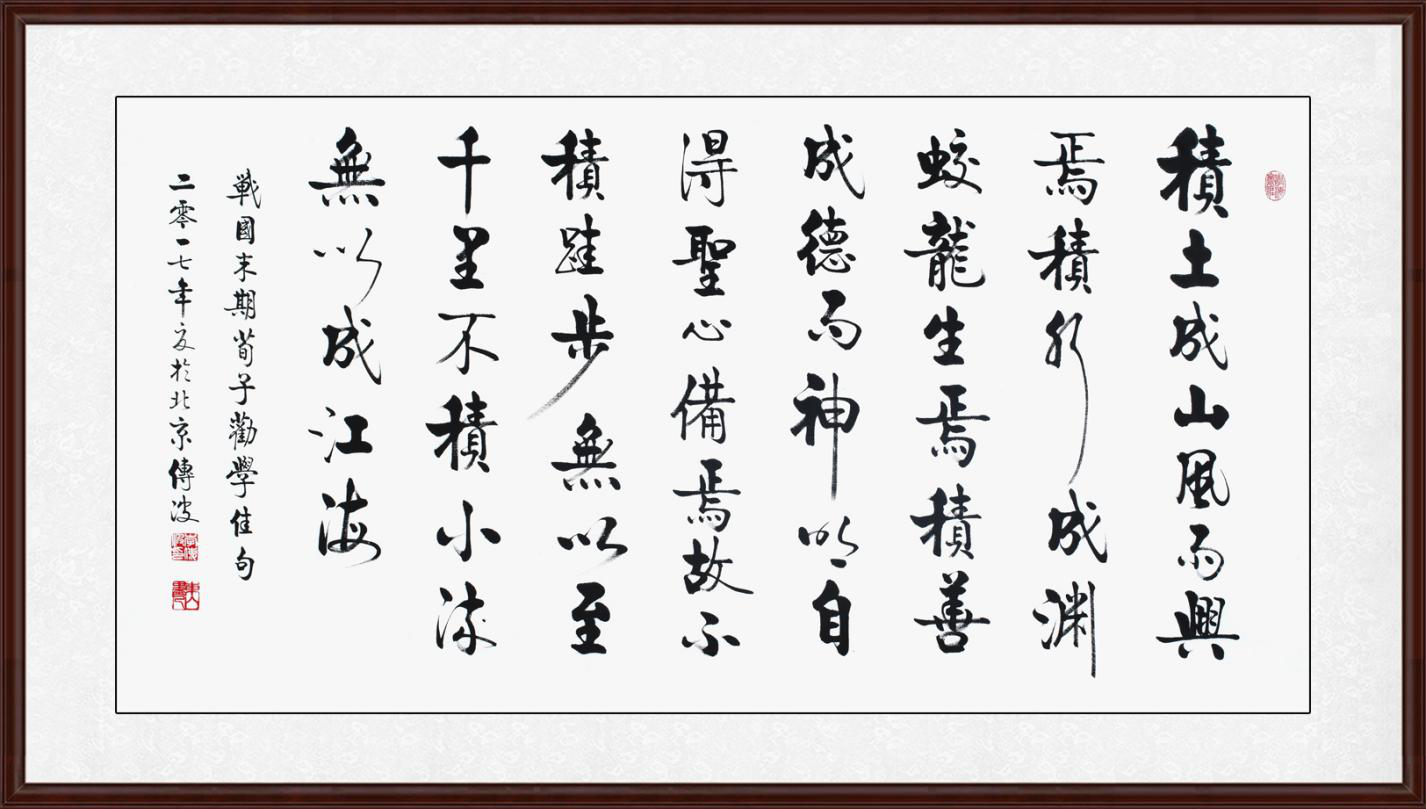 積土成山風而興
焉積水成渊
蛟龍生焉積善
成德而神明自
得聖心備焉故不
積跬步無以至
千里不積小流
無以成江海
戦國末期荀子勸學佳句
二零一七年夏於北京傳波